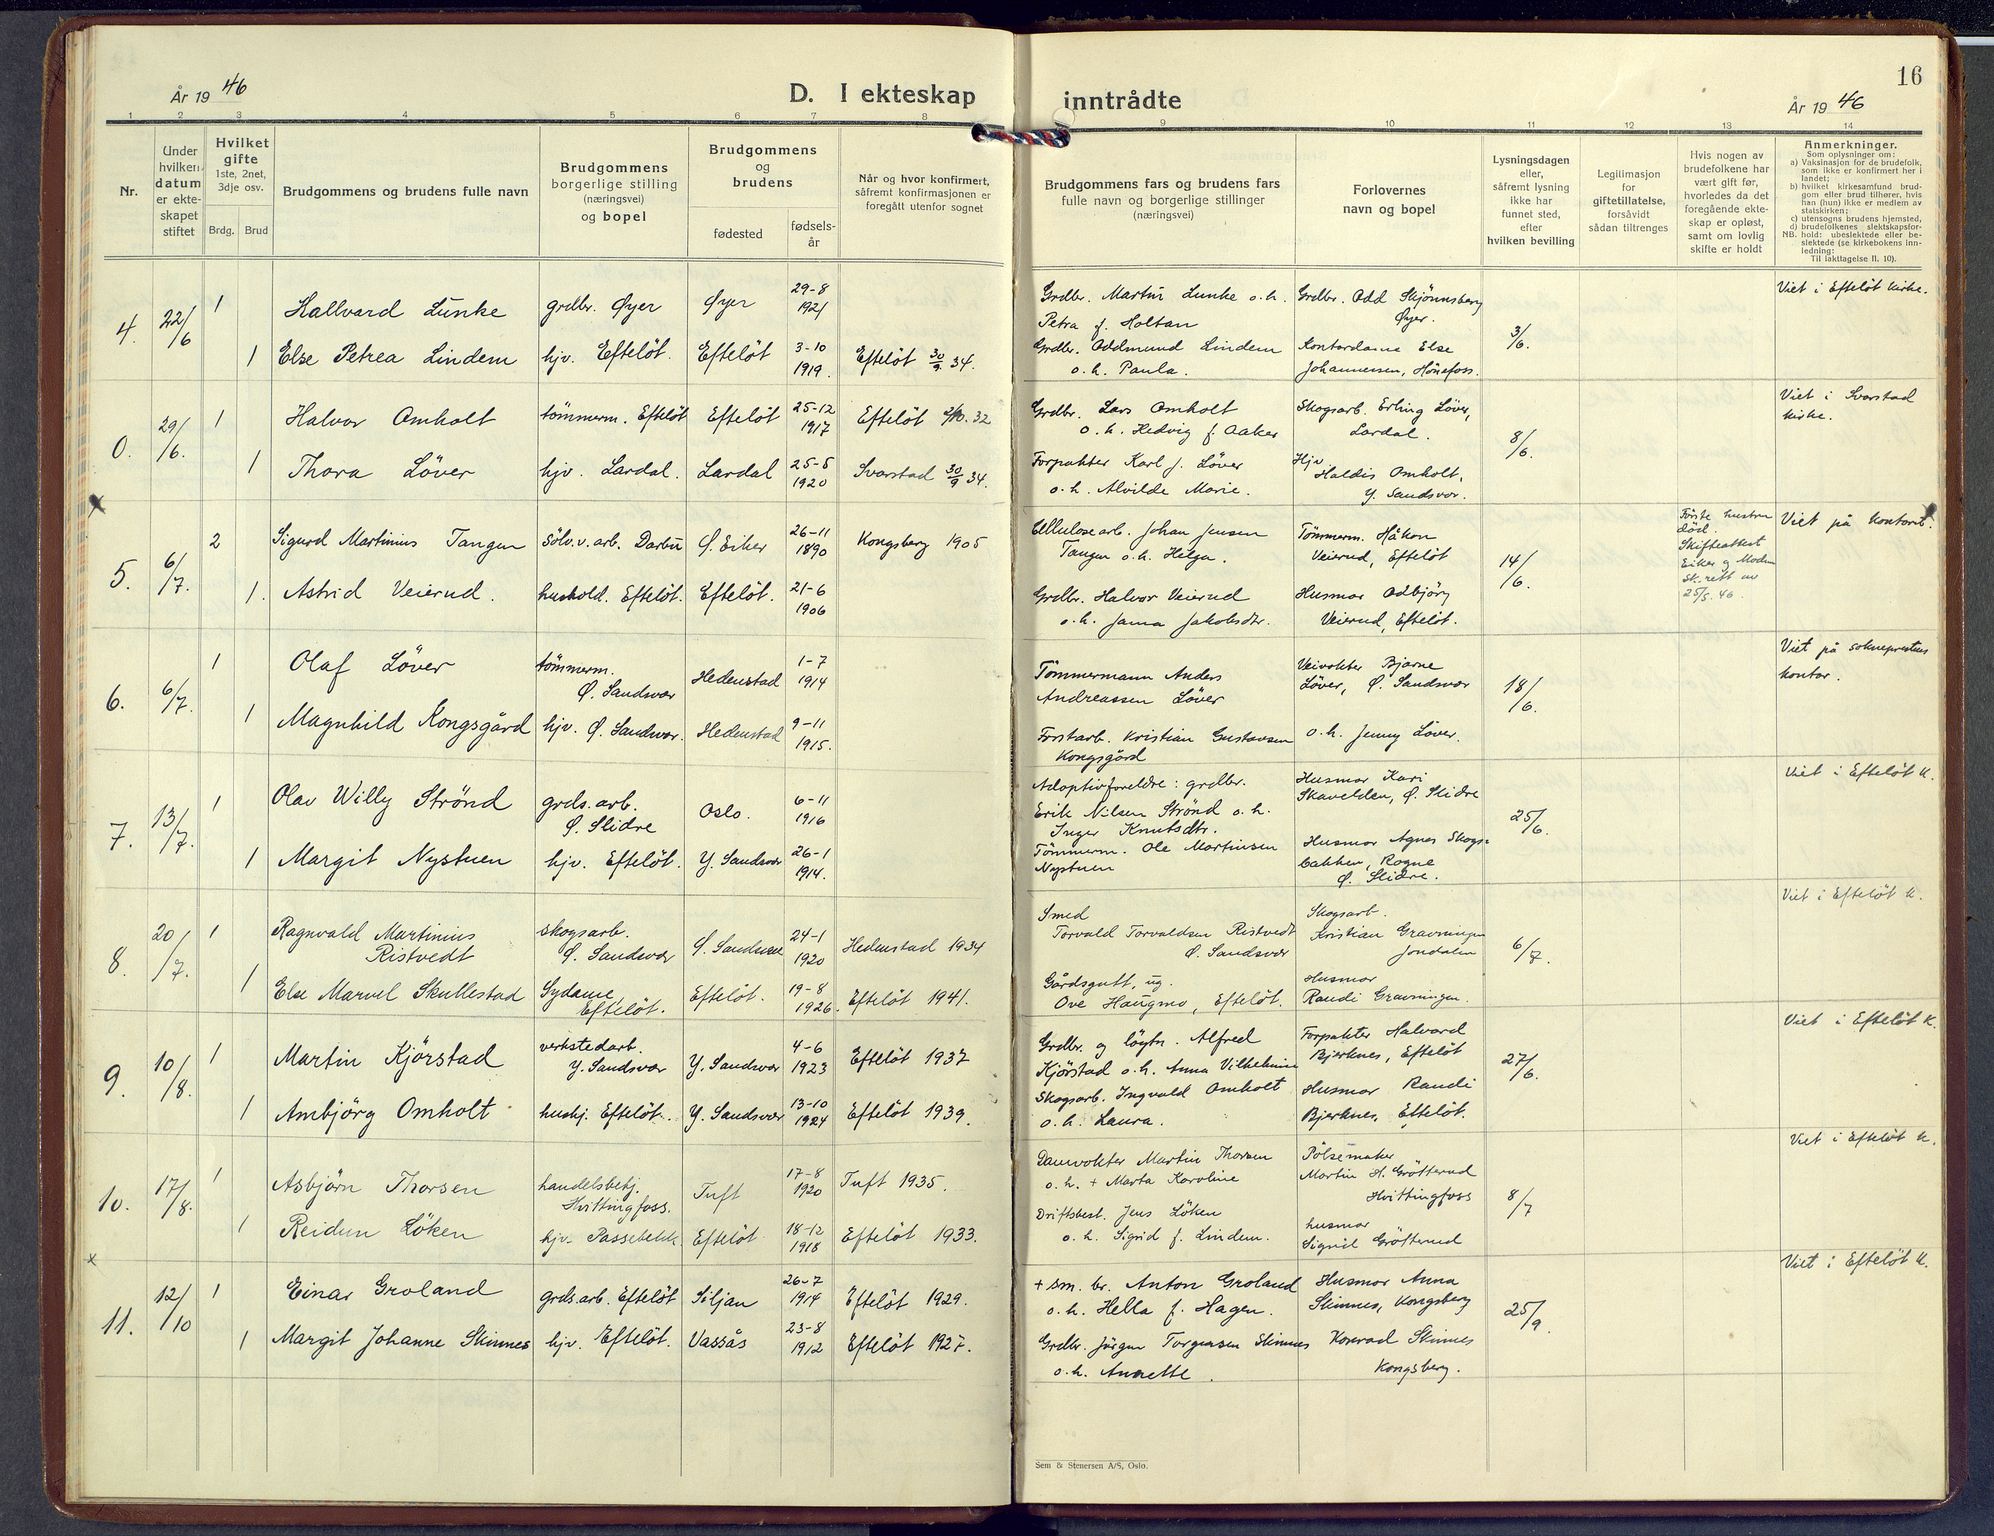 År 1946
D. I ekteskap inntrådte
År 1946
16
1 2 3 4 5 6 7 8 9 10 11 12 13 14
Nr.
Under hvilken datum er ekteskapet stiftet
Hvilket gifte 1ste, 2net, 3dje osv.
Brdg. Brud
Brudgommens og brudens fulle navn
Brudgommens borgerlige stilling (næringsvei) og bopel
Brudgommens og brudens
fødested
fødselsår
Når og hvor konfirmert, såfremt konfirmasjonen er foregått utenfor sognet
Brudgommens fars og brudens fars fulle navn og borgerlige stillinger (næringsvei)
Forlovernes navn og bopel
Lysningsdagen eller, såfremt lysning ikke har funnet sted, efter hvilken bevilling
Legitimasjon for giftetillatelse, forsåvidt sådan tiltrenges
Hvis nogen av brudefolkene har vært gift før, hvorledes da det foregående ekteskap er opløst, samt om lovlig skifte er holdt
Anmerkninger.
Som oplysninger om:
a) Vaksinasjon for de brudefolk, som ikke er konfirmert her i landet;
b) hvilket kirkesamfund brudgom eller brud tilhører, hvis han (hun) ikke er medlem av statskirken;
c) utensogns brudens hjemsted,
d) brudefolkenes slektskapsforhold: ubeslektede eller beslektede (se kirkebokens innledning:
NB.
Til iakttagelse II. 10).
4. 22/6 1 Hallvard Lunke grdbr. Øyer Øyer 29-8 1921
Grdbr. Martin Lunke o.h. Petra f. Holtan
Grdbr. Odd Skjønnsberg Øyer.
3/6.
Viet i Efteløt kirke.
1 Else Petrea Lindem hjv. Efteløt. Efteløt 3-10 1919. Efteløt 30/9 34.
Grdbr. Oddmund Lindem o.h. Paula.
Kontordame Else Johannessen, Hønefoss.
0. 29/6. 1 Halvor Omholt tömmerm. Efteløt Efteløt 25-12 1917 Efteløt 32
Grdbr. Lars Omholt o.h. Hedvig f. Aaker
Skogsarb. Erling Løver, Lardal.
8/6.
Viet i Svarstad kirke.
1 Thora Løver hjv. Lardal. Lardal 25-5 1920 Svarstad 30/9 34.
Forpakter Karl J. Løver o.h. Alvilde Marie.
Hjv Haldis Omholt, Y. Sandsvær.
x
5. 6/7. 2 Sigurd Martinius Tangen Sölv.v.arb. Darbu Ø. Eiker 26-11 1890 Kongsberg 1905
Cellulosearb. Johan Jensen Tangen o.h. Helga.
Tömmerm. Håkon Veierud, Efteløt
14/6.
Første hustru død. Skifteattest Eiker og Modum sk.rett av 25/5. 46.
Viet på kontoret.
1. Astrid Veierud. hushold. Efteløt. Efteløt. 21-6 1906
Grdbr. Halvor Veierud o.h. Jama Jakobsdtr.
Husmor Odbjörg Veierud, Efteløt.
6. 6/7. 1 Olaf Løver tömmerm. Ø. Sandsvær Hedenstad 1-7 1914
Tömmermann Anders Andreassen Løver
Veivokter Bjarne Løver, Ø. Sandsvær
18/6.
Viet på sokneprestens kontor.
1 Magnhild Kongsgård hjv. Ø. Sandsvær. Hedenstad 9-11 1915.
Forstarb. Kristian Gustavsen Kongsgård
o.h. Jenny Løver.
7. 13/7. 1 Olav Willy Strönd grds.arb. Ø. Slidre Oslo. 6-11 1916
Adoptivforeldre: grdbr. Erik Nilsen Strönd o.h. Inger Knutsdtr.
Husmor Kari Skavelden, Ø. Slidre
25/6.
Viet i Efteløt k.
1 Margit Nystuen hjv. Efteløt. Y. Sandsvær 26-1 1914.
Tömmerm. Ole Martinsen Nystuen
Husmor Agnes Skogsbakken, Rogne Ø. Slidre.
8. 20/7. 1 Ragnvald Martinius Ristvedt skogsarb. Ø. Sandsvær Ø. Sandsvær 24-1 1920 Hedenstad 1934
Smed Torvald Torvaldsen Ristvedt Ø. Sandsvær
Skogsarb. Kristian Gravningen Jondalen
6/7.
Viet i Efteløt k.
1 Else Marvel Skullestad Sydame, Efteløt. Efteløt. 19-8 1926. Efteløt 1941.
Gårdsgutt, ug. Ove Haugmo, Efteløt.
Husmor Randi Gravningen.
9. 10/8. 1 Martin Kjörstad verkstedarb. Y. Sandsvær Y. Sandsvær 4-6 1923 Efteløt 1937
Grdbr. og löytn. Alfred Kjörstad o.h. Anna Vilhelmine
Forpakter Halvard Bjerknes, Efteløt
27/6.
Viet i Efteløt k.
1 Ambjörg Omholt hushj. Efteløt. Y. Sandsvær 13-10 1924 Efteløt 1939.
Skogsarb. Ingvald Omholt o.h. Laura.
Husmor Randi Bjerknes, Efteløt.
10. 17/8. 1 Asbjörn Thorsen handelsbetj. Hvittingfoss. Tuft 17-8 1920 Tuft 1935.
Damvokter Martin Thorsen o.h. + Marta Karoline
Pölsemaker Martin H. Grötterud Hvittingfoss
8/7
Viet i Efteløt k.
1 Reidun Löken hjv. Passebekk Efteløt 18-12 1918 Efteløt 1933.
Driftsbest. Jens Löken o.h. Sigrid f. Lindem.
husmor Sigrid Grötterud
x
11. 12/10 1 Einar Groland grds.arb. Efteløt Siljan 26-7 1914 Efteløt 1929.
+ sm. br. Anton Groland o.h. Hella f. Hagen.
Husmor Anna Skinnes, Kongsberg
25/9.
Viet i Efteløt k.
1 Margit Johanne Skinnes hjv. Efteløt. Vassås 23-8 1912 Efteløt 1927.
Grdbr. Jörgen Torgersen Skinnes o.h. Annette.
Konrad Skinnes Kongsberg.
Sem & Stenersen A/S, Oslo.